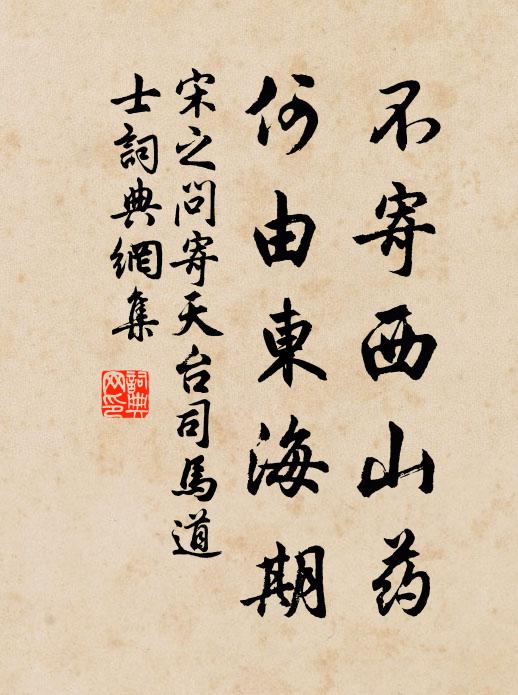 不寄西山药
何由東海期
宋之问寄天台司馬道
士詞典網集
詞典网印